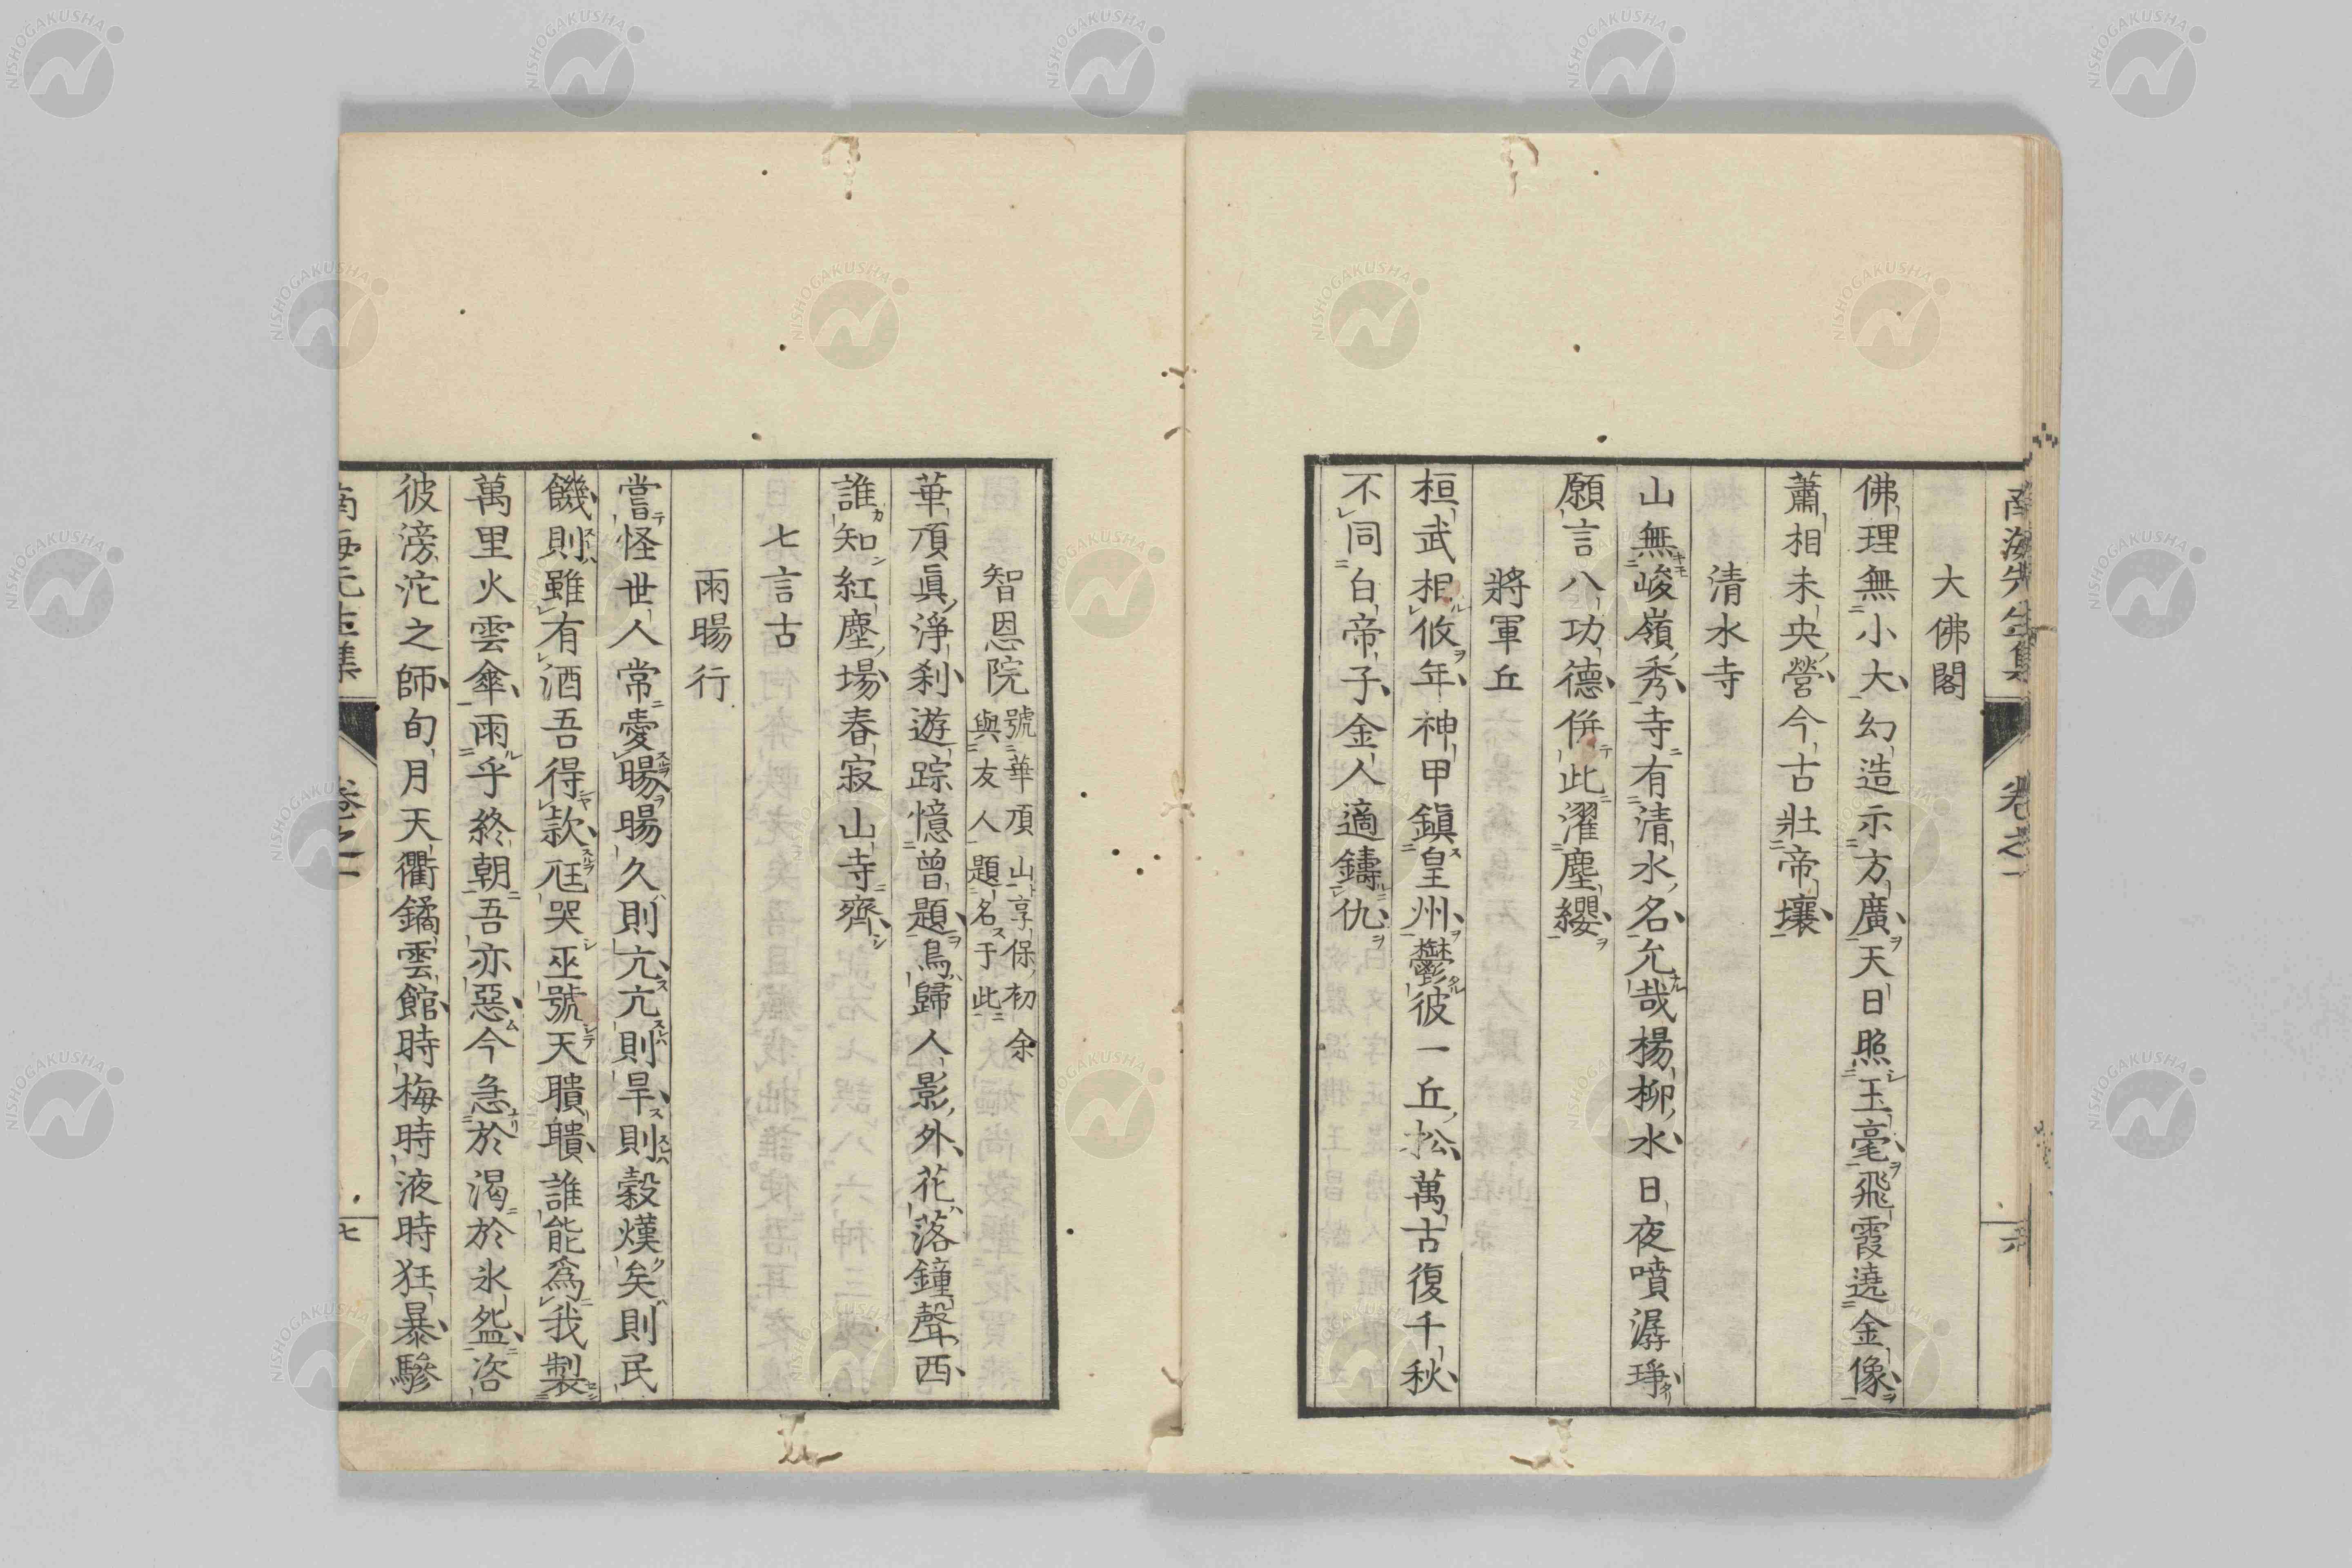 南海先生集 卷之一 六
大佛閣
佛理無小大幻造示方廣天日照玉毫飛霞遶金像
蕭相未央營今古壯帝壤
清水寺
山無峻嶺秀寺有清水名允哉楊柳水日夜噴潺琤
願言八功德倂此濯塵纓
將軍丘
桓武相攸年神甲鎭皇州鬱彼一丘松萬古復千秋
不同白帝子金人適鑄仇
智恩院 號華頂山享保初余
與友人題名于此
華頂眞淨刹遊踪憶曾題鳥歸人影外花落鐘聲西
誰知紅塵場春寂山寺齊
七言古
雨暘行
嘗怪世人常愛暘暘久則亢亢則旱旱則穀熯矣則民
饑則雖有酒吾得款尫哭巫號天聵聵誰能爲我製
萬里火雲傘雨乎終朝吾亦惡今急於渴於氷盌咨
彼滂沱之師旬月天衢鐍雲館時梅時液時狂暴驂
南海先生集 卷之一 七
NISHOGAKUSHA